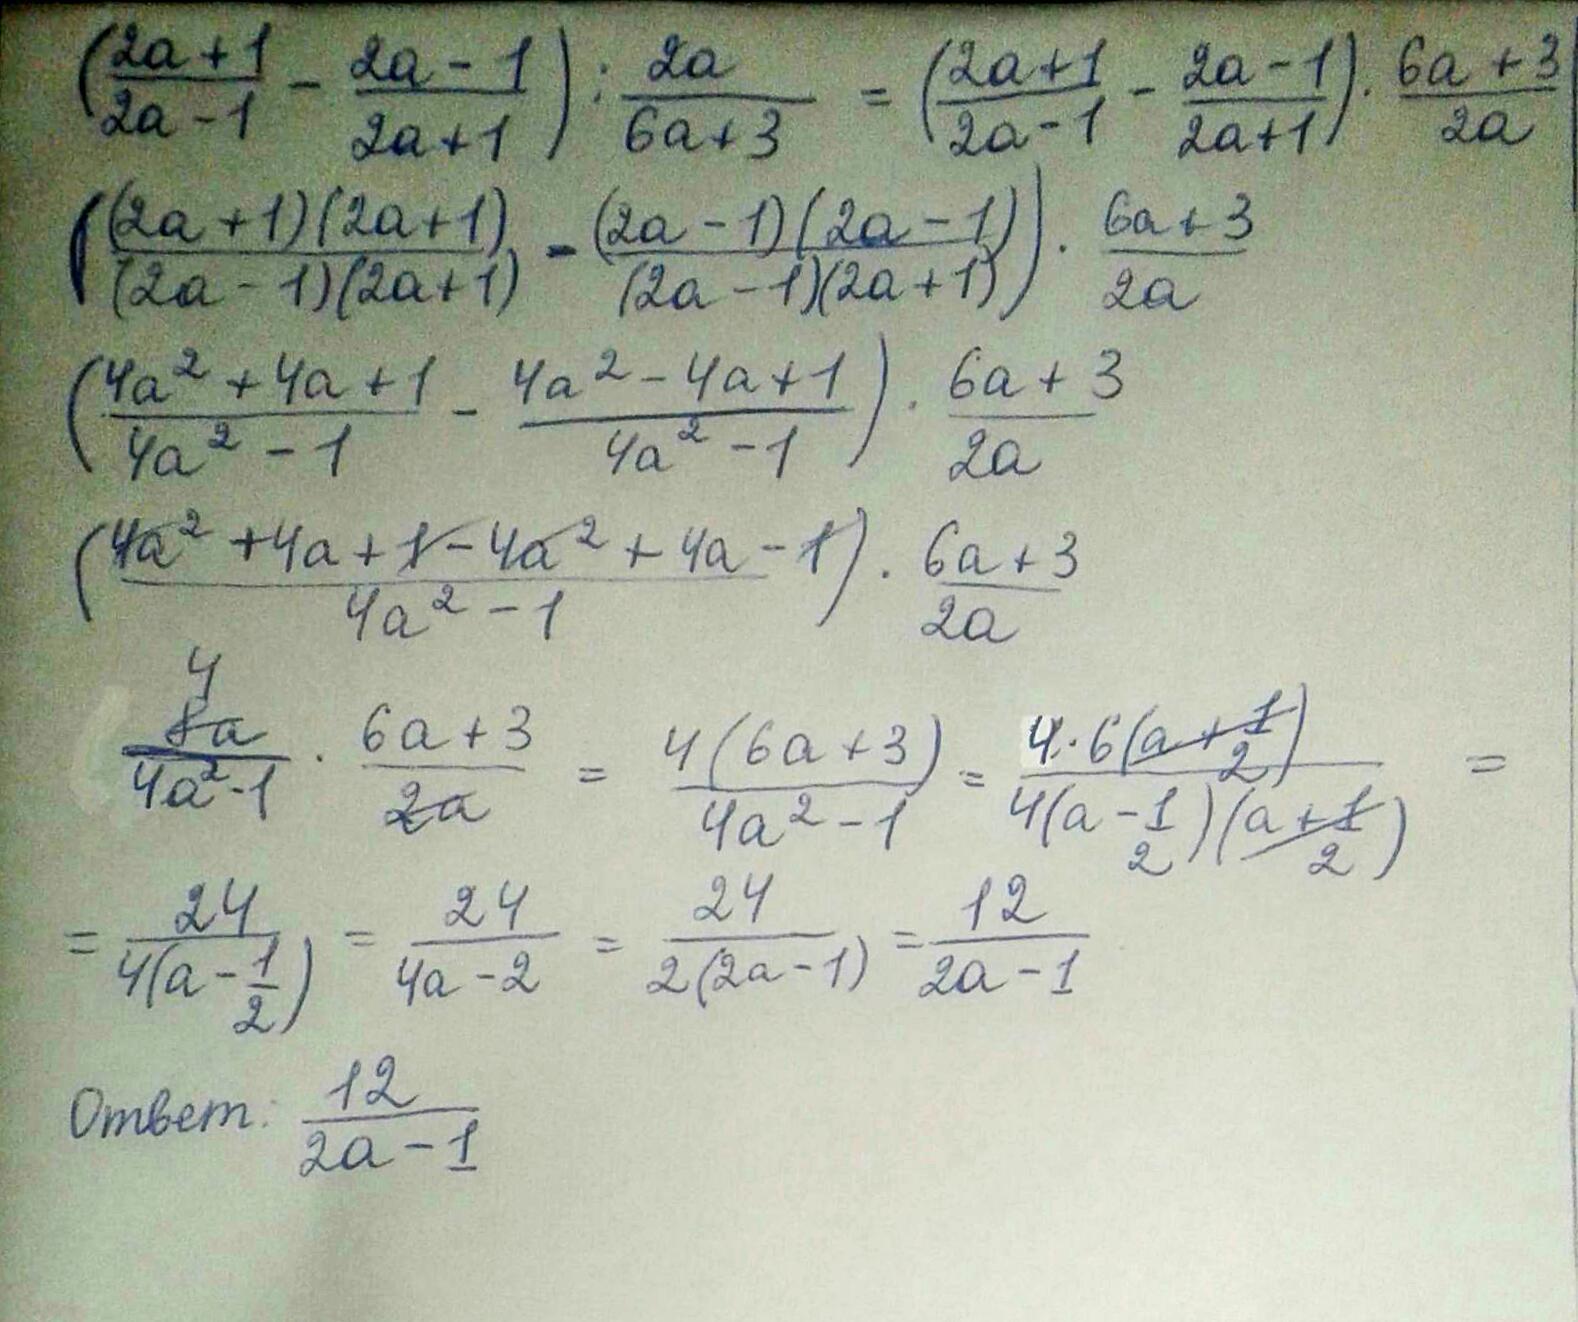 (2a+1/2a-1 - 2a-1/2a+1) : 2a/6a+3 = (2a+1/2a-1 - 2a-1/2a+1) · 6a+3/2a
((2a+1)(2a+1)/(2a-1)(2a+1) - (2a-1)(2a-1)/(2a-1)(2a+1)) · 6a+3/2a
(4a²+4a+1/4a²-1 - 4a²-4a+1/4a²-1) · 6a+3/2a
(4a²+4a+1-4a²+4a-1/4a²-1) · 6a+3/2a
4
8a/4a²-1 · 6a+3/2a = 4(6a+3)/4a²-1 = 4·6(a+1/2)/4(a-1/2)(a+1/2) =
= 24/4(a-1/2) = 24/4a-2 = 24/2(2a-1) = 12/2a-1
Ответ: 12/2a-1